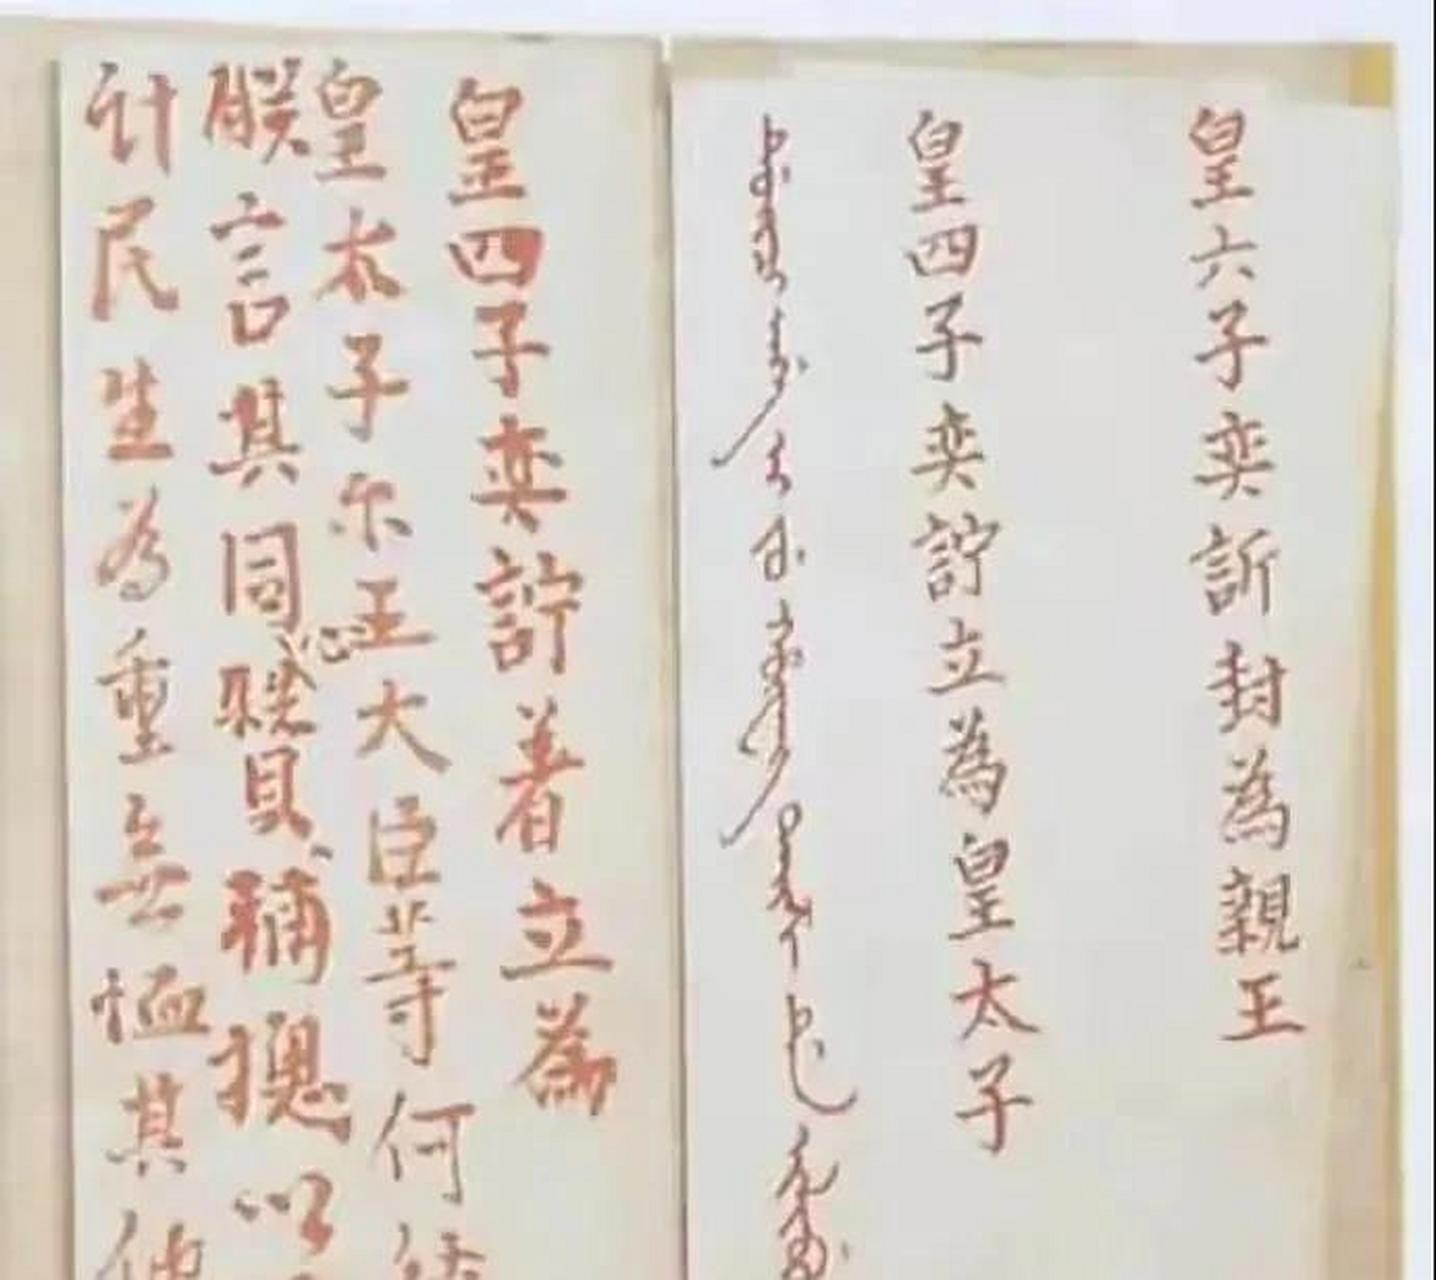 皇六子奕訢封為親王
皇四子奕詝立為皇太子
皇四子奕詝著立為
皇太子尔王大臣等何待
朕言其同心賛輔總以
計民生為重無恤其他